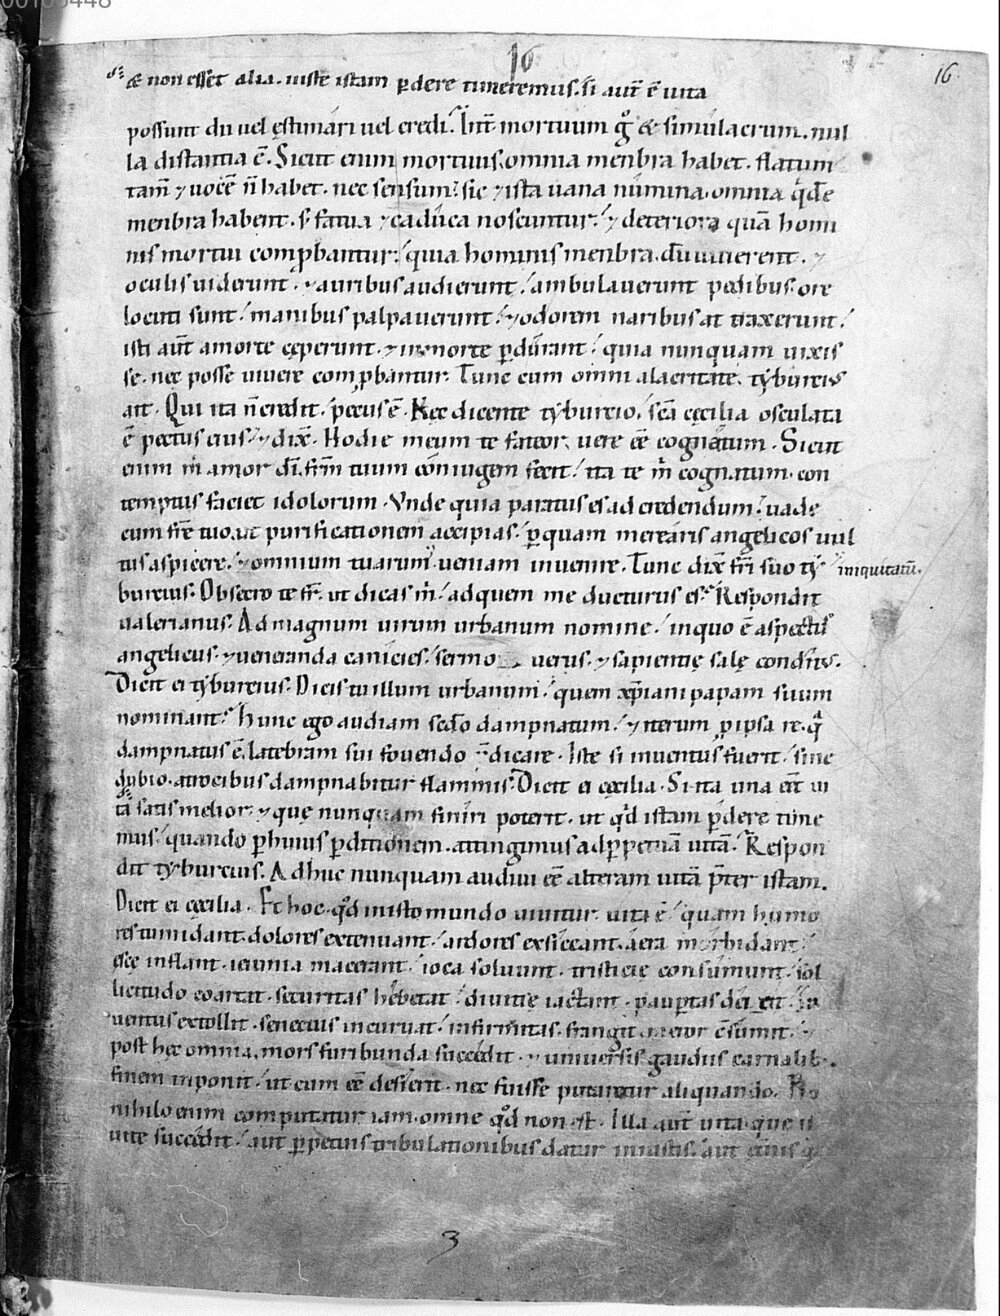 00105448
16
16
& non esset alia. iuste istam ꝑdere timeremus. si aut̄ ē uita
possunt dii uel ęstimari uel credi. Int̄ mortuum g̊ & simulacrum. nul
la distantia ē. Sicut enim mortuus omnia menbra habet. flatum
tam̄ ⁊ uocē n̄ habet. nec sensum. sic ⁊ ista uana numina omnia qͥdē
menbra habent. s; fatua ⁊ caduca noscuntur. ⁊ deteriora quā homi
nis mortui comꝓbantur. quia hominis menbra dū uiuerent. ⁊
oculis uiderunt. ⁊ auribus audierunt. ambulauerunt pedibus. ore
locuti sunt. manibus palpauerunt. ⁊ odorem naribus attraxerunt.
isti aut̄ a morte cęperunt. ⁊ in morte ꝑdurant. quia nunquam uixis
se. nec posse uiuere comꝓbantur. Tunc cum omni alacritate. tyburcius
ait. Qui ita n̄ credit. pecus ē. Hęc dicente tyburcio. sc̄a cęcilia osculata
ē pectus eius. ⁊ dix̄. Hodie meum te fateor uere eē cognatum. Sicut
enim m̄ amor dī. fr̄m tuum coniugem fecit. ita te m̄ cognatum. con
temptus faciet idolorum. Vnde quia paratus es ad credendum. uade
cum fr̄e tuo. ut purificationem accipias. ꝑ quam merearis angelicos uul
tus aspicere. ⁊ omnium tuarum ueniam inuenire. Tunc dix̄ fr̄i suo ty
iniquitatū.
burcius. Obsecro te fr̄. ut dicas m̄. ad quem me ducturus es. Respondit
ualerianus. Ad magnum uirum urbanum nomine. in quo ē aspectus
angelicus. ⁊ ueneranda canicies. sermo uerus. ⁊ sapientię sale conditus.
Dicit ei tyburcius. Dicis tu illum urbanum. quem xp̄iani papam suum
nominant. Hunc ego audiam secd̄o dampnatum. ⁊ iterum ꝓ ipsa re. qͣ
dampnatus ē. latebram sui fouendo dicare. Iste si inuentus fuerit. sine
dubio. atrocibus dampnabitur flammis. Dicit ei cęcilia. Si ita una eēt ui
ta satis melior. ⁊ que nunquam finiri poterit. ut qͥd istam ꝑdere time
mus. quando ꝑ huius ꝑditionem. attingimus ad ꝑpetuā uitā. Respon
dit tyburcius. Adhuc nunquam audiui eē alteram uitā p̄ter istam.
Dicit ei cęcilia. Et hoc. qd̄ in isto mundo uiuitur. uita ē. quam humo
res tumidant. dolores extenuant. ardores exsiccant. aera morbidant.
escę inflant. ieiunia macerant. ioca soluunt. tristicię consumunt. sol
licitudo coartat. securitas hebetat. diuitię iactant. pauꝑtas deicit. iu
uentus extollit. senectus incuruat. infirmitas frangit. meror c̄sumit.
post hęc omnia. mors furibunda succedit. ⁊ uniuersis gaudiis carnalib;.
finem inponit. ut cum eē desierit. nec fuisse putaretur aliquando. Pro
nihilo enim computatur iam. omne qd̄ non est. Illa aut̄ uita. que ui
uite succedit. aut ꝑpetuis tribulationibus datur iniustis.
3